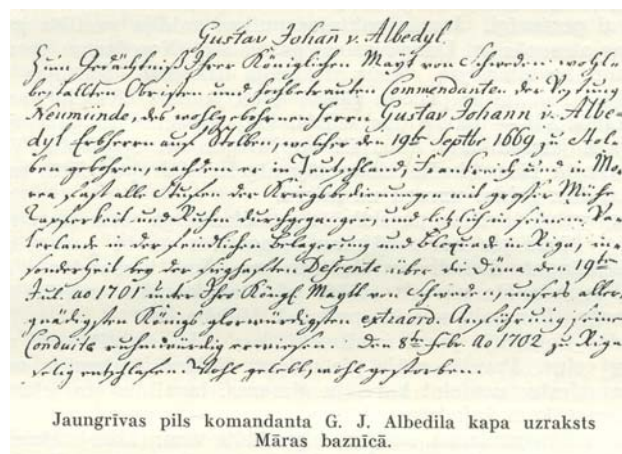 Gustav Johann v. Albedyl.
Zum Gedächtniß Ihrer Königlichen Mayt von Schweden wohl-
bestallten Obristen und hochbetrauten Commendanten der Vestung
Neumünde, des wohlgebohrnen Herrn Gustav Johann v. Albe-
dyl Erbherrn auf Stolben, welcher den 19ten Septbr 1669 zu Stol-
ben gebohren, nachdem er in Teutschland, Frankreich und in Mo-
rea fast alle Stufen der Kriegsbedienungen mit grosser Mühe
Tapferkeit und Ruhm durchgegangen, und letzlich in seinem Va-
terlande in der feindlichen Belagerung und Bloquade in Riga, in-
sonderheit bey der sieghafften Descente über die Düna den 19ten
Jul. ao 1701 unter Ihro Köngl. Maytt von Schweden, unsers aller-
gnädigsten Königs glorwürdigsten extraord. Anführung, seine
Conduite ruhmwürdig erwiesen. Den 8ten Febr. Ao 1702 zu Riga
selig entschlafen. Wohl gelebt, wohl gestorben.
Jaungrīvas pils komandanta G. J. Albedila kapa uzraksts
Māras baznīcā.